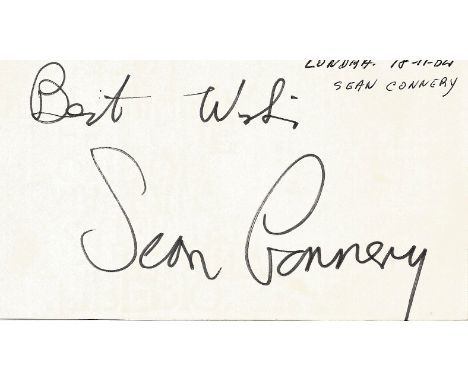 LONDON. 18-11-04
SEAN CONNERY
Best Wishes
Sean Connery